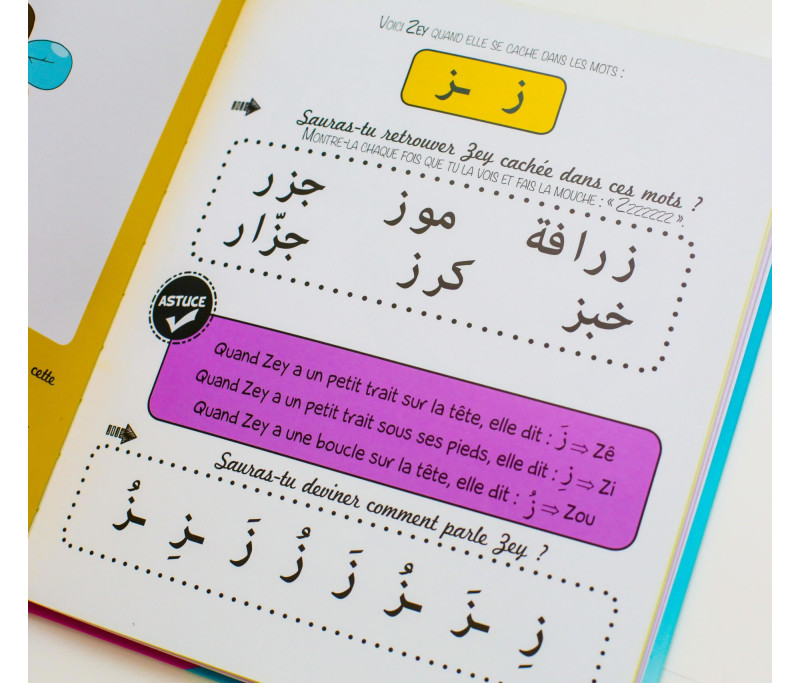 cette
VOICI ZEY QUAND ELLE SE CACHE DANS LES MOTS :
ز ـز
Sauras-tu retrouver Zey cachée dans ces mots ?
MONTRE-LA CHAQUE FOIS QUE TU LA VOIS ET FAIS LA MOUCHE : « ZZZZZZZ ».
زرافة موز جزر
خبز كرز جزّار
ASTUCE
Quand Zey a un petit trait sur la tête, elle dit : زَ ⇒ Zê
Quand Zey a un petit trait sous ses pieds, elle dit : زِ ⇒ Zi
Quand Zey a une boucle sur la tête, elle dit : زُ ⇒ Zou
Sauras-tu deviner comment parle Zey ?
زِ ـزَ ـزُ زَ زُ زَ ـزِ ـزُ